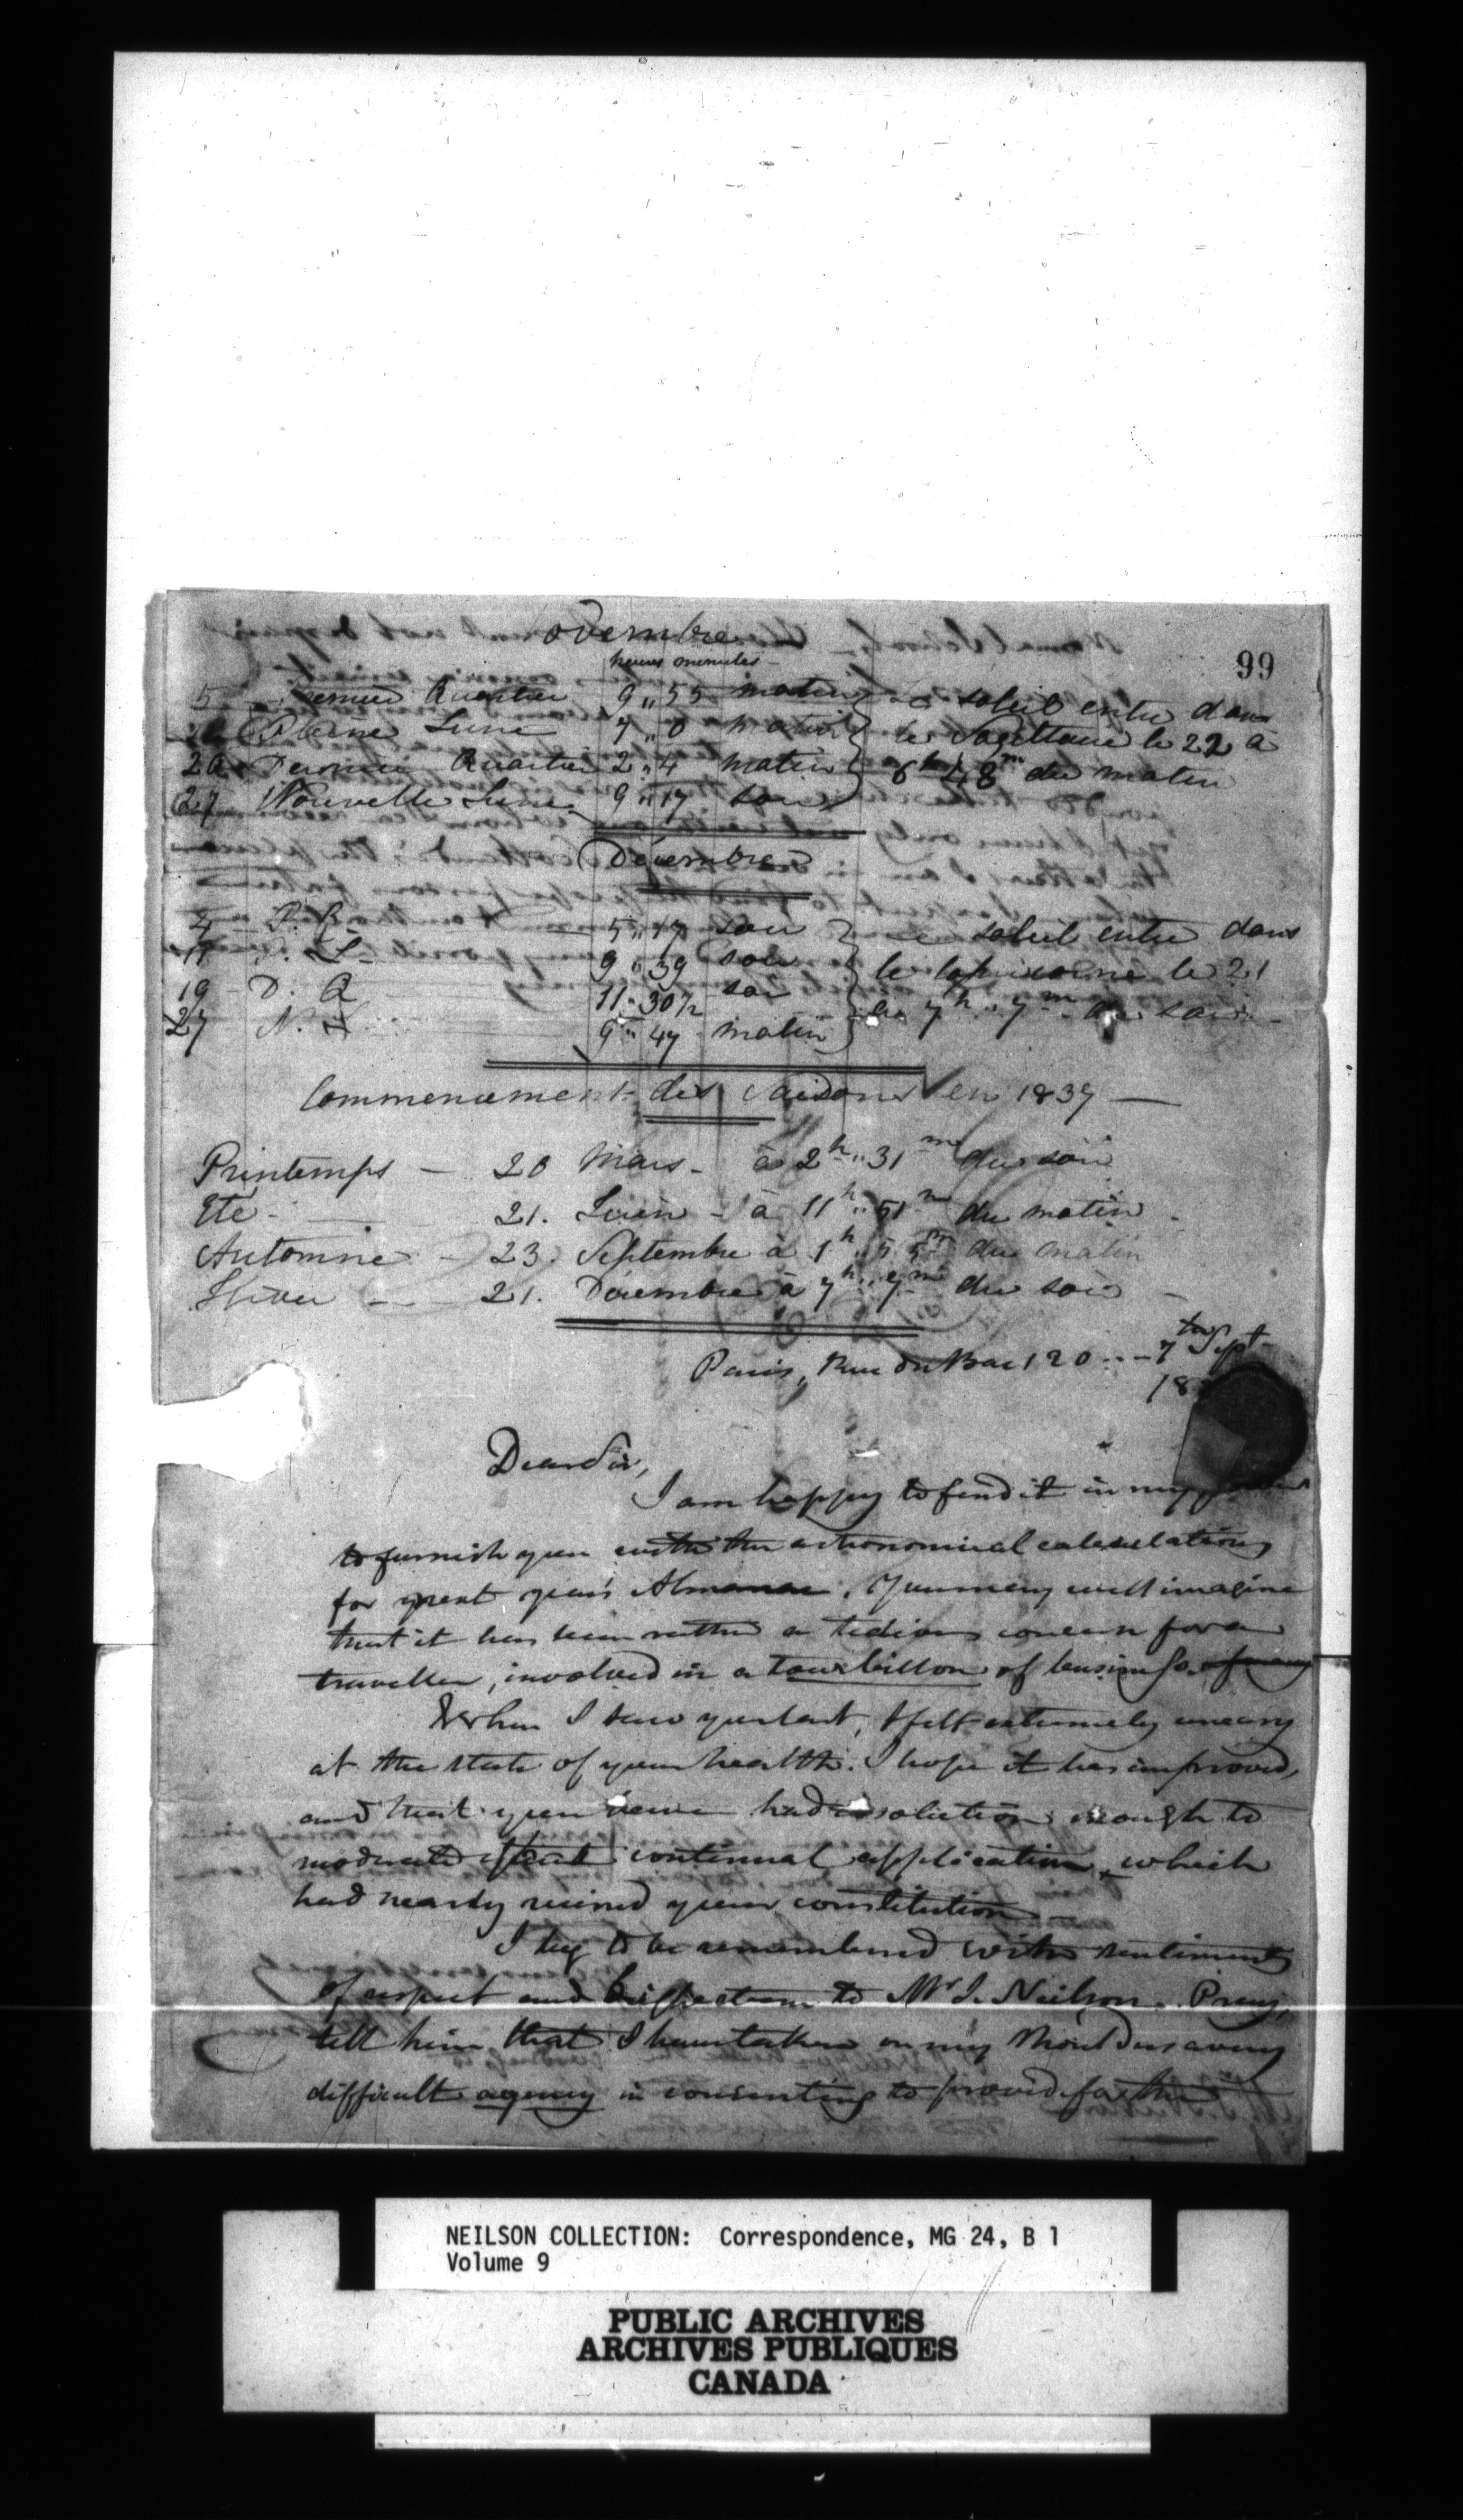 99
ovembre
heures minutes
5 Premier Quartier 9 " 55 matin Le soleil entre dans
Pleine Lune 7 " 0 matin le Sagittaire le 22 à
20 Dernier Quartier 2 " 4 matin 6h 48m du matin
27 Nouvelle Lune 9 " 17 soir
Décembre
4 P. Q. 5 " 17 soir Le soleil entre dans
11 P. L. 9 " 39 soir le Capricorne le 21
19 D. Q 11 " 30½ soir à 7h " 7m du soir
27 N. L 9 " 47 matin
Commencement des Saisons en 1837
Printemps — 20 Mars - à 2h " 31m du soir
Eté - 21. Juin - à 11h " 51m du matin
Automne - 23. Septembre à 1h " 55m du matin
Hiver - 21. Décembre à 7h " 7m du soir
Paris, Rue du Bac 120 - 7th Sept
18
Dear Sir,
I am happy to find it in my
to furnish you with the astronomical calculations
for next year's Almanac. You may well imagine
that it has been rather a tedious concern for a
traveller, involved in a tourbillon of business
When I saw you last, I felt extremely uneasy
at the state of your health. I hope it has improved,
and that you have had resolution enough to
moderate that continual application, which
had nearly ruined your constitution
I beg to be remembered with sentiments
of respect and to Mr J. Neilson. Pray,
tell him that I have taken on my shoulders a very
difficult agency in consenting to provide for the
NEILSON COLLECTION: Correspondence, MG 24, B 1
Volume 9
PUBLIC ARCHIVES
ARCHIVES PUBLIQUES
CANADA